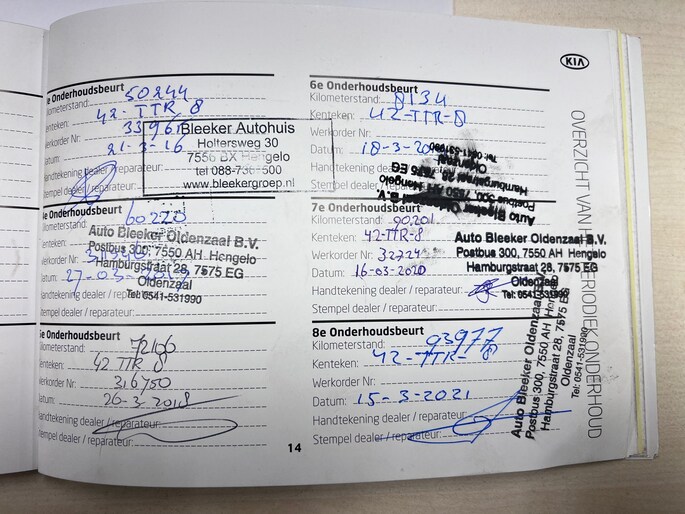 KIA
OVERZICHT VAN HET PERIODIEK ONDERHOUD
e Onderhoudsbeurt
Kilometerstand: 50244
Kenteken: 42-TTR-8
Werkorder Nr:
Datum: 21-3-16
Handtekening dealer / reparateur:
Stempel dealer / reparateur:
Bleeker Autohuis
Holtersweg 30
7556 BX Hengelo
www.bleekergroep.nl
e Onderhoudsbeurt
Kilometerstand: 60220
Kenteken:
Werkorder Nr:
Datum:
Handtekening dealer / reparateur:
Stempel dealer / reparateur:
Auto Bleeker Oldenzaal B.V.
Postbus 300, 7550 AH Hengelo
Hamburgstraat 28, 7575 EG
Oldenzaal
Tel: 0541-531990
e Onderhoudsbeurt
Kilometerstand: 72106
Kenteken: 42 TTR 8
Werkorder Nr: 316750
Datum: 26-3-2018
Handtekening dealer / reparateur:
Stempel dealer / reparateur:
6e Onderhoudsbeurt
Kilometerstand:
Kenteken: 42-TTR-8
Werkorder Nr:
Datum:
Handtekening dealer
Stempel dealer /
7e Onderhoudsbeurt
Kilometerstand: 90201
Kenteken: 42-TTR-8
Werkorder Nr: 32724
Datum: 16-03-2020
Handtekening dealer / reparateur:
Stempel dealer / reparateur:
Auto Bleeker Oldenzaal B.V.
Postbus 300, 7550 AH Hengelo
Hamburgstraat 28, 7575 EG
Oldenzaal
Tel: 0541-531990
8e Onderhoudsbeurt
Kilometerstand: 93977
Kenteken: 42-TTR-8
Werkorder Nr:
Datum: 15-3-2021
Handtekening dealer / reparateur:
Stempel dealer / reparateur:
Auto Bleeker Oldenzaal
Postbus 300, 7550 AH
Hamburgstraat 28, 7575 EG
Oldenzaal
Tel: 0541-531990
14